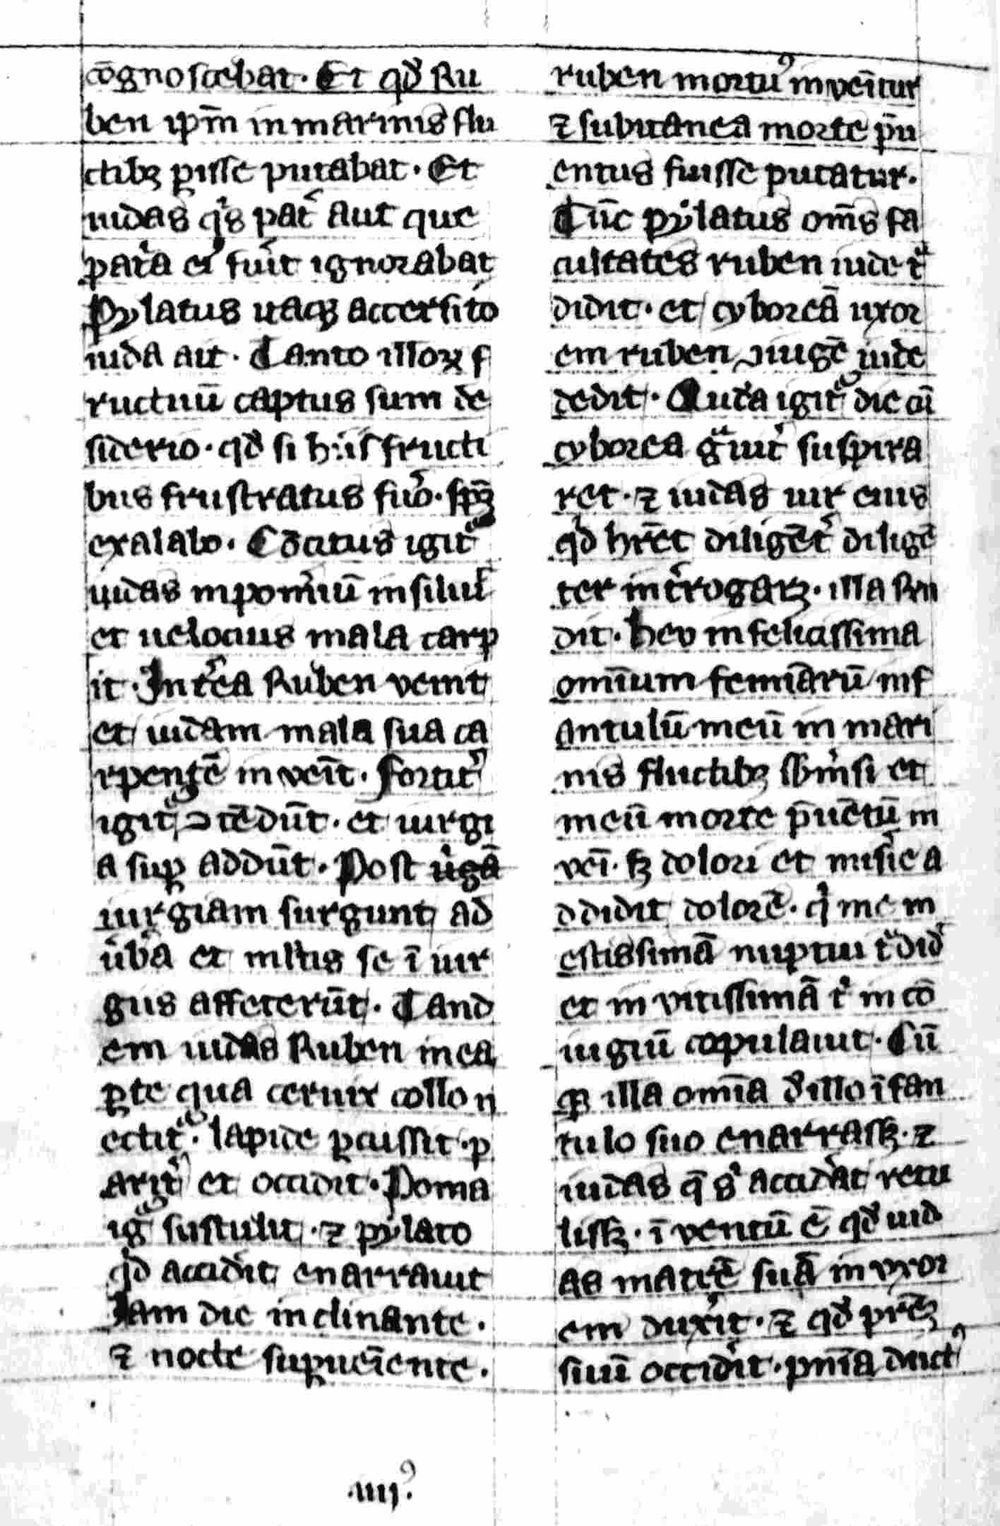 cōgnoscebat · Et qđ Ru
ben ip̄m in marinis flu
ctibꝫ ꝑisse putabat · Et
iudas qͥs pat͛ aut que
pat͛a ei᷒ fuit ignorabat
Pylatus itaqꝫ accersito
iuda ait · Tanto illoꝝ f
ructuū captus sum de
siderio · qđ si hiis fructi
bus frustratus fuō · sp̄m
exalabo · Cōcitus igit᷑
iudas in pom̄iū insiluit
et uelocius mala carp
it · Int͛ea Ruben venit
et iudam mala sua ca
rpentē inveīt · fortit͛
igit᷑ ↄtēdūt · et iurgi
a suꝑ addūt · Post iurgā
iurgiam surgunt ad
ūba et ml̄tis se ī iur
giis affecerūt · Tand
em iudas Ruben in ea
ꝑte qua ceruix collo n
ectit᷑ · lapide ꝑcussit · p
arit͛ et occidit · Poma
igͥ sustulit · ⁊ pylato
qđ accidit enarrauit
Iam die inclinante ·
⁊ nocte supueīente ·
·iiij᷒·
ruben mortu᷒ inveītur
⁊ subitanea morte p̄u
entus fuisse putatur ·
Tūc pylatus om̄s fa
cultates ruben iude tͣ
didit · et cyboreā uxor
em ruben ↄiugē iude
dedit · Quadā igit᷑ die cū
cyborea gͣuit͛ suspira
ret · ⁊ iudas uir eius
qͥd hr̄et diligēt͛ diligē
ter int͛rogarꝫ · illa Rn̄
dit · heu infelicissima
omīum femīarū inf
antulū meū in mari
nis fluctibꝫ sbm̄si et
meū morte p̄uētū in
veī · sꝫ dolori et miśie a
ddidit dolorē · qͥ me m
estissimā nuptui tͣdid͛
et invitissimā t͛ in cō
iugiū copulauit · Cū
qꝫ illa omīa d͛ illo īfan
tulo suo enarrassꝫ · ⁊
iudas q̄ sͥ accidͣat retu
lissꝫ · īventū ē qđ iud
as matrē suā in vxor
em duxit · ⁊ qđ pr̄em
suū occidit · pn̄ia duct᷒